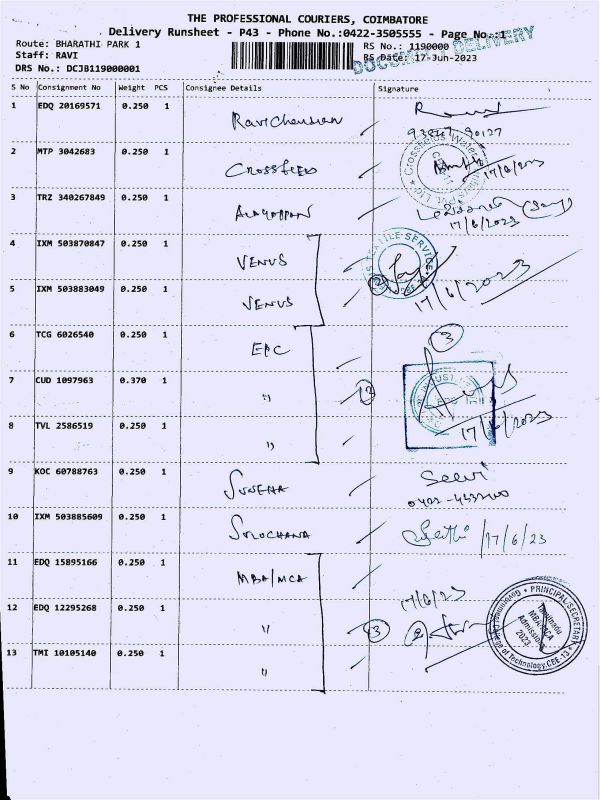 THE PROFESSIONAL COURIERS, COIMBATORE
Delivery Runsheet - P43 - Phone No.:0422-3505555 - Page No.:1
Route: BHARATHI PARK 1 RS No.: 1190000
Staff: RAVI RS Date: 17-Jun-2023
DRS No.: DCJB119000001
DOCUMENT DELIVERY
S No Consignment No Weight PCS Consignee Details Signature
1 EDQ 20169571 0.250 1 Ravichandran
2 MTP 3042683 0.250 1 CROSSFIELD 17/6/2023
3 TRZ 340267849 0.250 1 Alagappan 17/6/2023
4 IXM 503870847 0.250 1 VENUS
5 IXM 503883049 0.250 1 VENUS 2 17/6/2023
6 TCG 6026540 0.250 1 EPC 3
7 CUD 1097963 0.370 1 "
8 TVL 2586519 0.250 1 " 17/6/2023
9 KOC 60788763 0.250 1 SUNEHA Selvi
10 IXM 503885609 0.250 1 SULOCHANA 17/6/23
11 EDQ 15895166 0.250 1 MBA/MCA 17/6/23
12 EDQ 12295268 0.250 1 " 3
13 TMI 10105140 0.250 1 "
PRINCIPAL/SECRETARY
Tamilnadu
MBA/MCA
Admissions
2023
of Technology, CBE-13